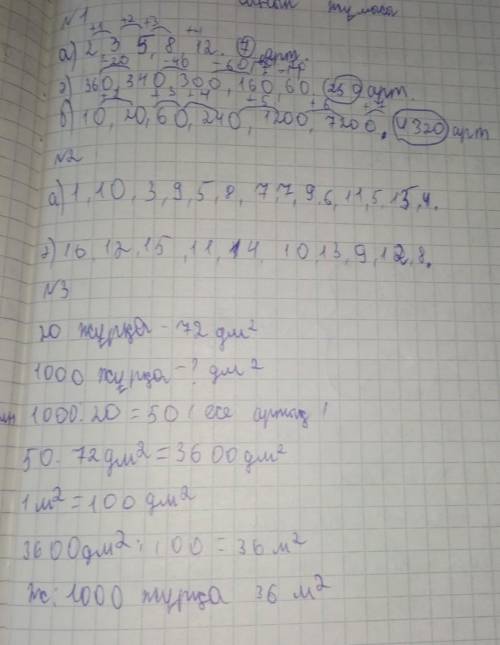 №1
+1 +2 +3 +4
а) 2, 3, 5, 8, 12. 7 арт.
-20 -40
ә) 360, 340, 300, 160, 60. арт
б) 10, 20, 60, 240, 1200, 7200, 4320 арт
№2
а) 1, 10, 3, 9, 5, 8, 7, 7, 9, 6, 11, 5, 13, 4.
ә) 16, 12, 15, 11, 14, 10, 13, 9, 12, 8.
№3
20 жұрқа - 72 дм²
1000 жұрқа - ? дм²
1000 : 20 = 50 ( есе артық )
50 · 72 дм² = 3600 дм²
1 м² = 100 дм²
3600 дм² : 100 = 36 м²
Ж: 1000 жұрқа 36 м²